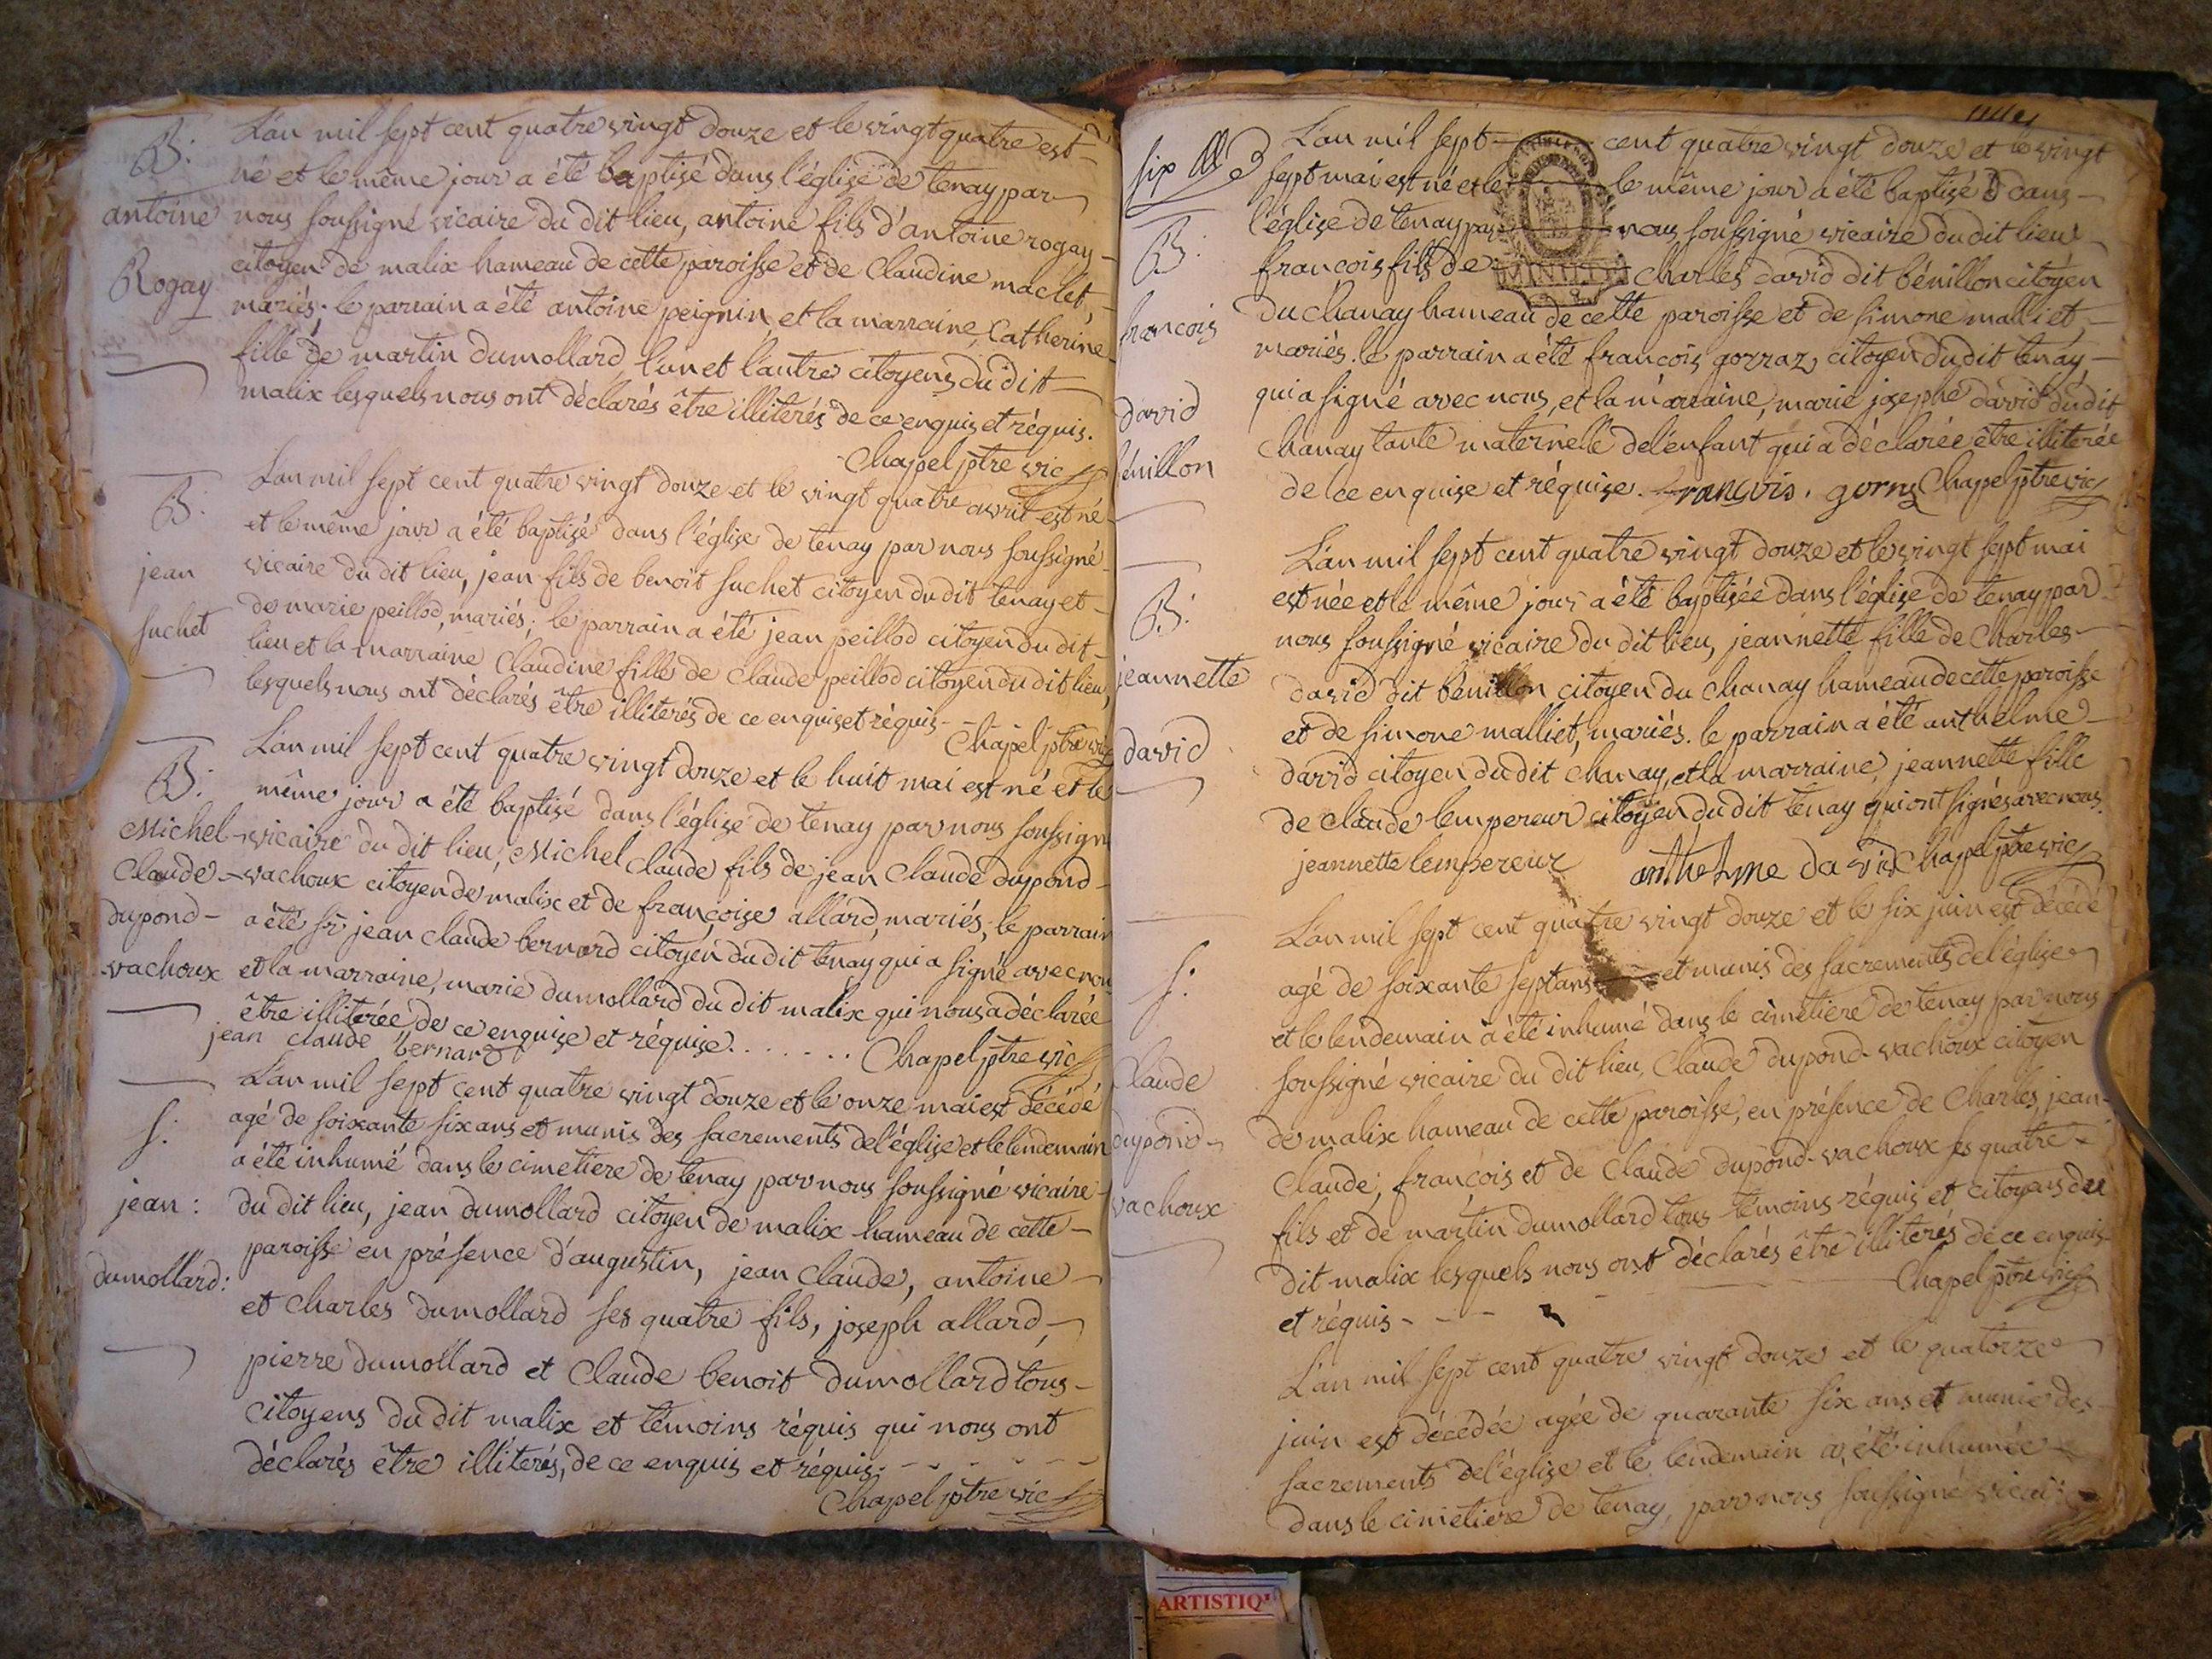 B:
antoine
Rogay
L'an mil sept cent quatre vingt douze et le vingt quatre est
né et le même jour a été baptisé dans l'église de tenay par
nous soussigné vicaire du dit lieu, antoine fils d'antoine rogay
citoyen de malix hameau de cette paroisse et de Claudine maclet,
mariés. le parrain a été antoine peignin, et la marraine, Catherine
fille de martin dumollard, l'un et l'autre citoyens du dit
malix lesquels nous ont déclarés être illiterés de ce enquis et réquis.
Chapel ptre vic
B:
jean
suchet
L'an mil sept cent quatre vingt douze et le vingt quatre avril est né
et le même jour a été baptisé dans l'église de tenay par nous soussigné
vicaire du dit lieu, jean fils de benoit suchet citoyen du dit tenay et
de marie peillod, mariés; le parrain a été jean peillod citoyen du dit
lieu et la marraine Claudine fille de Claude peillod citoyen du dit lieu,
lesquels nous ont déclarés être illiterés de ce enquis et réquis - -
Chapel ptre vic
B:
Michel
Claude
dupond-
vachoux
L'an mil sept cent quatre vingt douze et le huit mai est né et le
même jour a été baptisé dans l'église de tenay par nous soussigné
vicaire du dit lieu, Michel Claude fils de jean Claude dupond-
vachoux citoyen de malix et de françoise allard, mariés; le parrain
a été sr jean claude bernard citoyen du dit tenay qui a signé avec nou
et la marraine, marie dumollard du dit malix qui nous a déclarée
être illiterée, de ce enquise et réquise. . . . . . . Chapel ptre vic
jean claude bernard
S:
jean:
dumollard:
L'an mil sept cent quatre vingt douze et le onze mai est décédé
agé de soixante six ans et munis des sacrements de l'église et le lendemain
a été inhumé dans le cimetiere de tenay par nous soussigné vicaire
du dit lieu, jean dumollard citoyen de malix hameau de cette
paroisse en présence d'augustin, jean claude, antoine
et Charles dumollard ses quatre fils, joseph allard,
pierre dumollard et Claude benoit dumollard tous
citoyens du dit malix et témoins réquis qui nous ont
déclarés être illiterés, de ce enquis et réquis. - - - - - -
Chapel ptre vic
six
B:
francois
david
bénillon
L'an mil sept cent quatre vingt douze et le vingt
sept mai est né et le le même jour a été baptisé dans
l'église de tenay par nous soussigné vicaire du dit lieu
francois fils de Charles david dit bénillon citoyen
du Chanay hameau de cette paroisse et de simone malliet,
mariés. le parrain a été francois gorraz, citoyen du dit tenay,
qui a signé avec nous, et la marraine, marie josephe david du dit
Chanay tante maternelle de l'enfant qui a déclarée être illiterée
de ce enquise et réquise. françois. gorraz Chapel ptre vic
B:
jeannette
david
L'an mil sept cent quatre vingt douze et le vingt sept mai
est née et le même jour a été baptisée dans l'église de tenay par
nous soussigné vicaire du dit lieu, jeannette fille de Charles
david dit bénillon citoyen du Chanay hameau de cette paroisse
et de simone malliet, mariés. le parrain a été anthelme
david citoyen du dit Chanay, et la marraine, jeannette fille
de Claude lempereur citoyen du dit tenay qui ont signés avec nous.
jeannette lempereur anthelme david Chapel ptre vic
S:
Claude
dupond-
vachoux
L'an mil sept cent quatre vingt douze et le six juin est décédé
agé de soixante sept ans et munis des sacrements de l'église
et le lendemain a été inhumé dans le cimetiere de tenay par nous
soussigné vicaire du dit lieu, Claude dupond-vachoux citoyen
de malix hameau de cette paroisse, en présence de Charles, jean-
Claude, françois et de Claude dupond-vachoux ses quatre
fils et de martin dumollard tous témoins réquis et citoyens du
dit malix lesquels nous ont déclarés être illiterés de ce enquis
et réquis - - - Chapel ptre vic
L'an mil sept cent quatre vingt douze et le quatorze
juin est décédée agée de quarante six ans et munie des
sacrements de l'église et le lendemain a été inhumée
dans le cimetiere de tenay, par nous soussigné vicai
ARTISTIQ